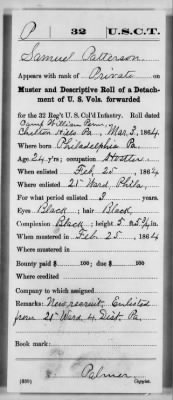 P 32 U.S.C.T.
Samuel Patterson
Appears with rank of Private on
Muster and Descriptive Roll of a Detach-
ment of U. S. Vols. forwarded
for the 32 Reg't U. S. Col'd Infantry. Roll dated
Camp William Penn,
Chelten Hills Pa., Mar. 3, 1864.
Where born Philadelphia Pa.
Age 24 y'rs; occupation
When enlisted Feb. 25, 1864
Where enlisted 21" Ward, Phila.
For what period enlisted 3 years.
Eyes Black; hair Black,
Complexion Black; height 5 ft. in.
When mustered in Feb. 25, 1864
Where mustered in
Bounty paid $ 100; due $ 100
Where credited
Company to which assigned
Remarks: New recruit, Enlisted
from 21" Ward 4 Dist. Pa.
Book mark:
Palmer
(339) Copyist.